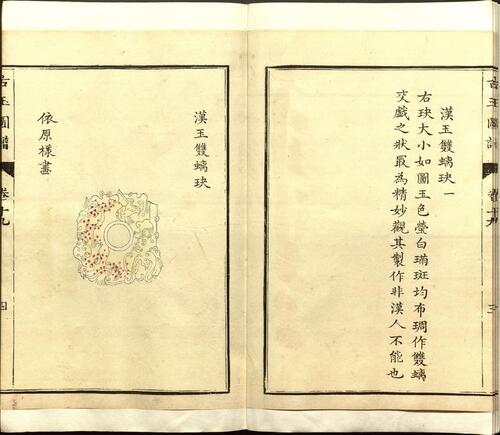 漢玉雙螭玦一
右玦大小如圖玉色瑩白璊斑均布琱作雙螭
交戲之狀最為精妙觀其製作非漢人不能也
三
漢玉雙螭玦
依原樣畫
古玉圖譜
卷十九
四